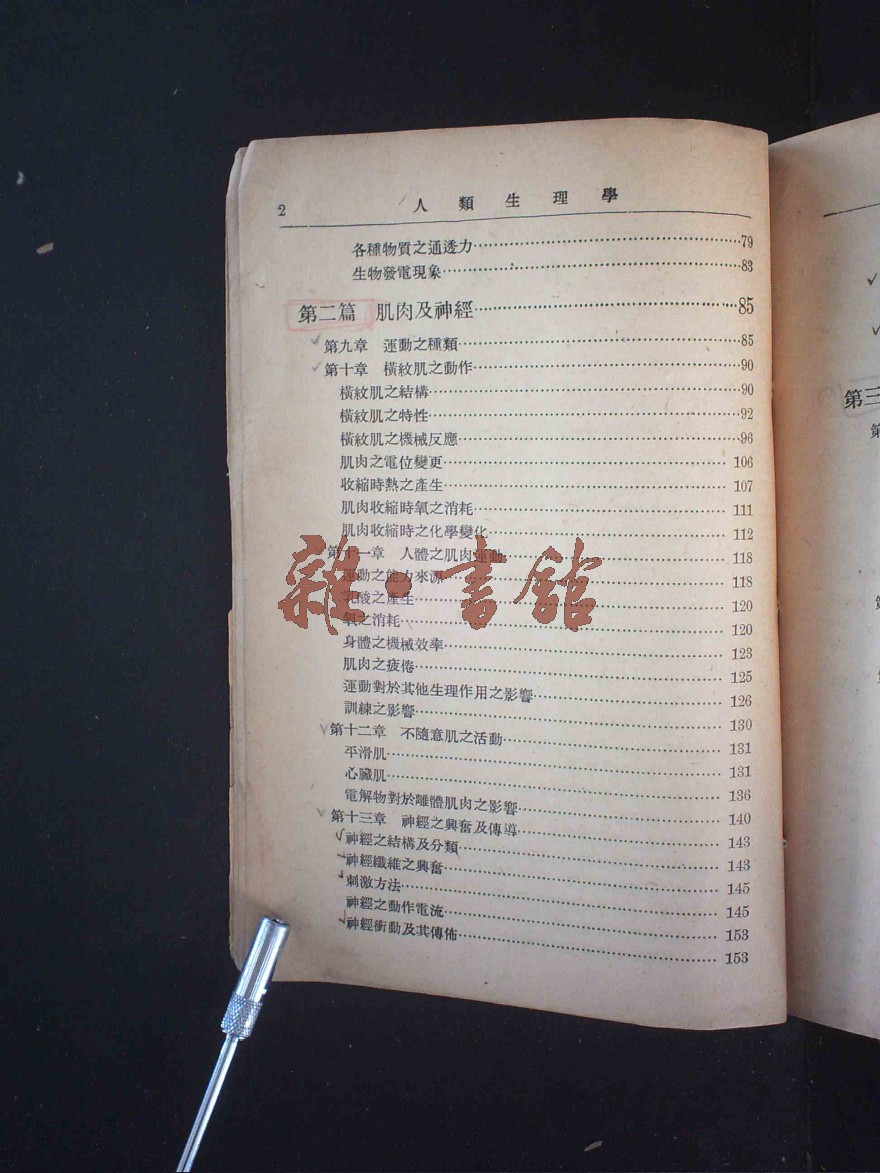 2 人類生理學
各種物質之通透力……79
生物發電現象……83
第二篇 肌肉及神經……85
第九章 運動之種類……85
第十章 橫紋肌之動作……90
橫紋肌之結構……90
橫紋肌之特性……92
橫紋肌之機械反應……96
肌肉之電位變更……106
收縮時熱之產生……107
肌肉收縮時氧之消耗……111
肌肉收縮時之化學變化……112
第十一章 人體之肌肉運動……118
運動之能力來源……118
乳酸之產生……120
氧之消耗……120
身體之機械效率……123
肌肉之疲倦……125
運動對於其他生理作用之影響……126
訓練之影響……130
第十二章 不隨意肌之活動……131
平滑肌……131
心臟肌……136
電解物對於離體肌肉之影響……140
第十三章 神經之興奮及傳導……143
神經之結構及分類……143
神經纖維之興奮……145
刺激方法……145
神經之動作電流……153
神經衝動及其傳佈……153
雜·書館
第三